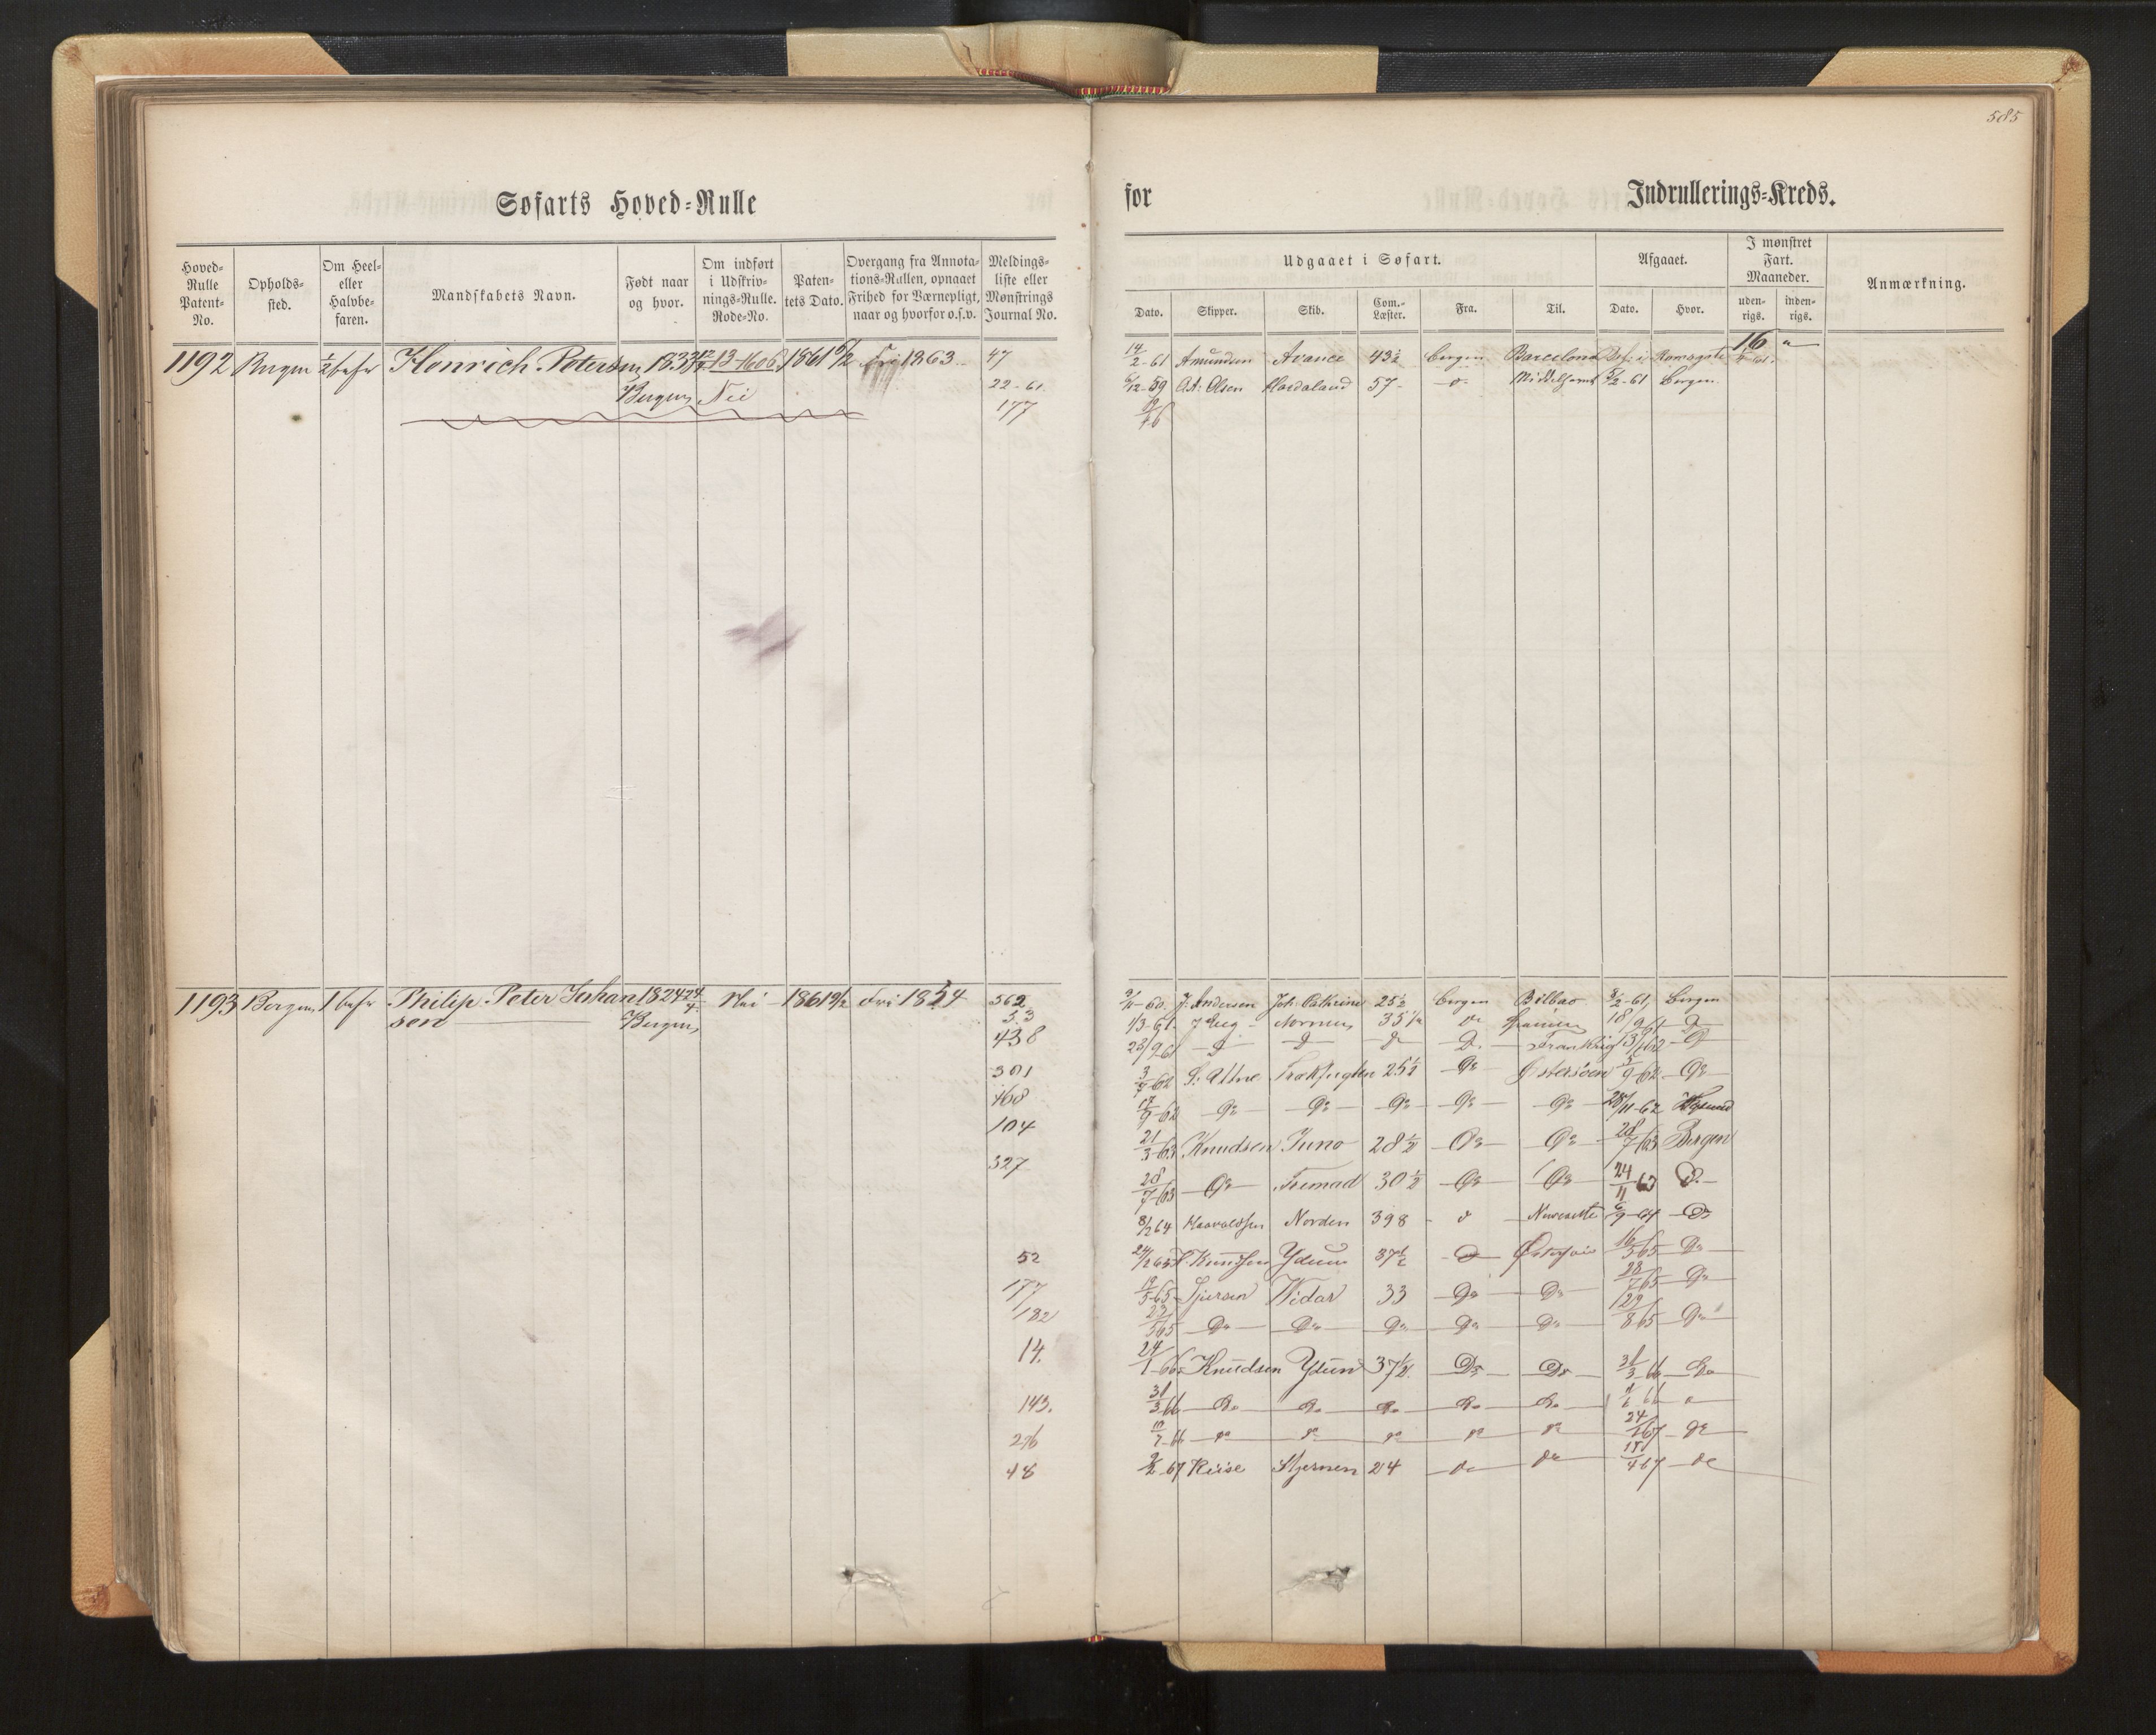 585
Søfarts Hoved-Rulle
for Indrullerings-Kreds.
Hoved-Rulle Patent-No.
Opholds-sted.
Om Heel- eller Halvbe-faren.
Mandskabets Navn.
Født naar og hvor.
Om indført i Udskriv-nings-Rulle. Rode-No.
Paten-tets Dato.
Overgang fra Annota-tions-Rullen, opnaaet Frihed for Værnepligt, naar og hvorfor o.s.v.
Meldings-liste eller Mønstrings Journal No.
Udgaaet i Søfart.
Dato. Skipper. Skib. Com.-Læster. Fra. Til.
Afgaaet.
Dato. Hvor.
I mønstret Fart. Maaneder.
uden-rigs. inden-rigs.
Anmærkning.
1192 Bergen 1/2 befr Henrich Petersen 1833 13-1606 1861 Fri 1863 47
Bergen Nei 22-61
177
14/2-61 Amundsen Avance 43½ Bergen Barcelona Ramsgate 16
6/12-59 Olsen Hordaland 57 5/2-61 Bergen
1193 Bergen 1 befr Philip Peter Johan 1824 Nei 1861 Fri 1854 362
sen Bergen 53
438
301
468
104
327
52
177
182
14.
143.
276
48
60 J. Andersen Joh. Cathrine 25½ Bergen Bilbao 8/2-61 Bergen
1/3-61 35½ Spanien 18/9 61 D
23/9-61 D D D D Frankrig
3/5-62 Trækfuglen 25½ Do Østersøen 5/9-62 Do
17/9-62 Do Do Do Do Do 28/11-62
21/3-63 Knudsen Juno 28½ Do Do 28/7-63 Bergen
28/7-63 Do Fremad 30½ Do Do 24/11 63 D
8/2 64 Norden 398 Newcastle 6/9-64 Do
Ydun 37½ D 16/5 65 Do
19/5-65 Widar 33 Do Do 28/7 65 Do
65 Do Do Do Do Do 8 65 Do
24/1-66 Knudsen Ydun 37½ Do Do 31/3 66 Do
31/3 66 Do Do Do Do Do 66
66 do do do do do 24 67 do
9/2-67 Stjernen 24 do do 4 67 do